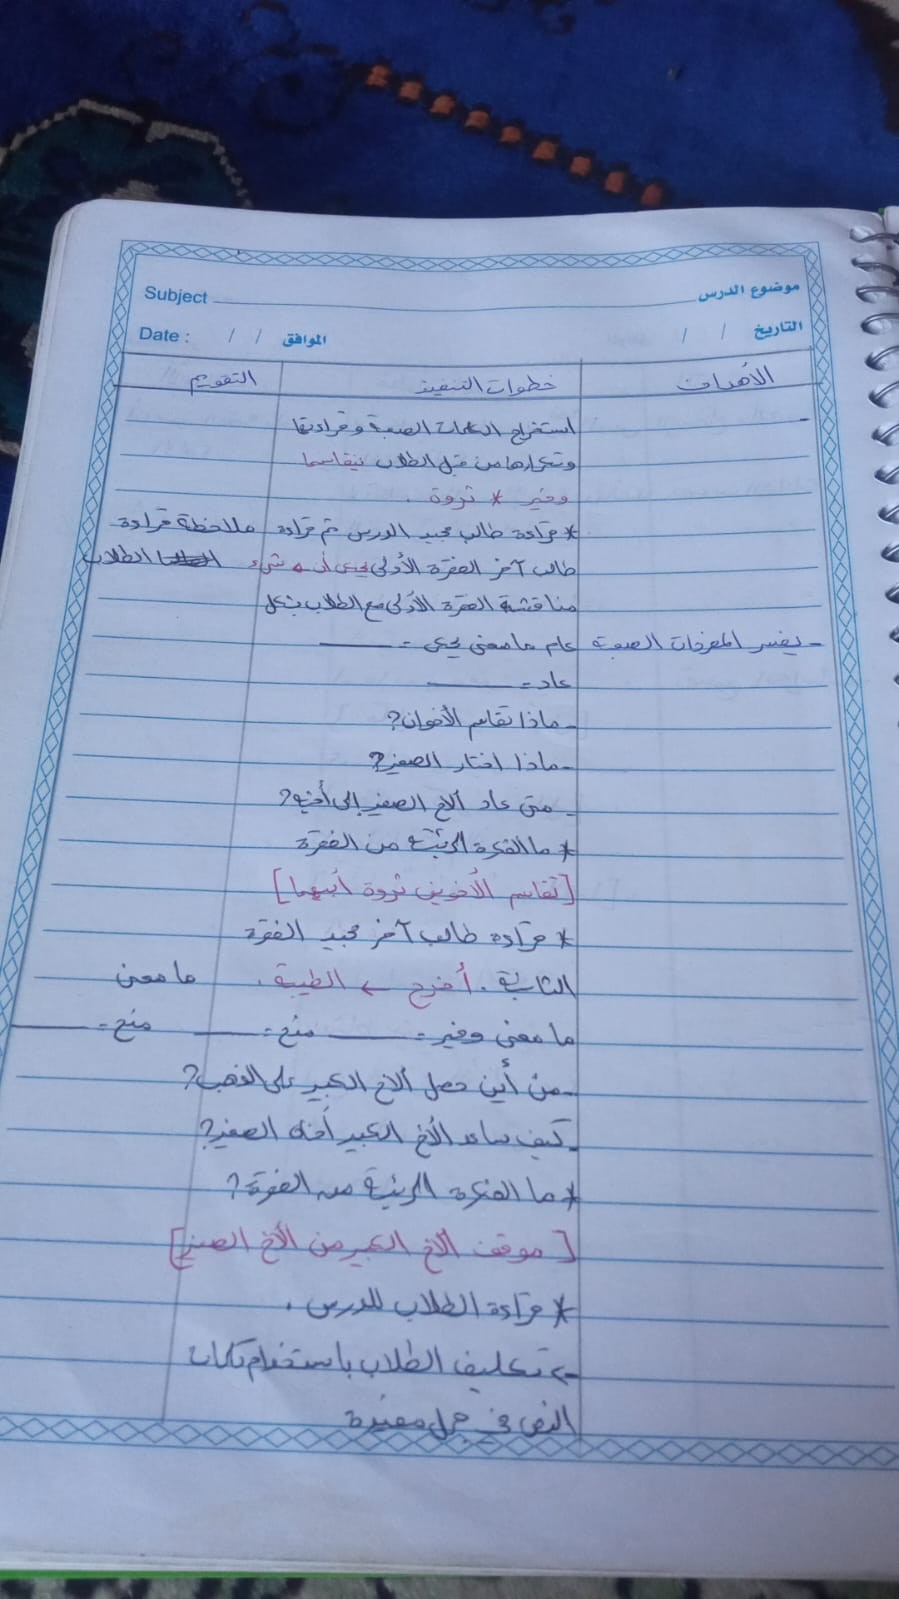 Subject موضوع الدرس
Date : / / الموافق / / التاريخ
الأهداف خطوات التنفيذ التقويم
استخراج الكلمات الصعبة وقراءتها
وتكرارها من قبل الطلاب تقاسما
وفير * ثروة .
* قراءة طالب مجيد الدرس ثم قراءة ملاحظة قراءة
طالب آخر الفقرة الأولى يحكى أن الطلاب
مناقشة الفقرة الأولى مع الطلاب بشكل
- يفسر المفردات الصعبة عام ما معنى يحكى =
عاد =
- ماذا تقاسم الأخوان؟
- ماذا اختار الصغير؟
- متى عاد الأخ الصغير إلى أخيه؟
* ما الفكرة الرئيسة من الفقرة
[تقاسم الأخوين ثروة أبيهما]
* قراءة طالب آخر مجيد الفقرة
الثانية . أخرج ← الطيبة . ما معنى
ما معنى وفير = منح = منح =
- من أين حصل الأخ الكبير على الذهب؟
- كيف ساعد الأخ الكبير أخاه الصغير؟
* ما الفكرة الرئيسية من الفقرة؟
[موقف الأخ الكبير من الأخ الصغير]
* قراءة الطلاب للدرس .
- تكليف الطلاب باستخدام كلمات
النص في جمل مفيدة